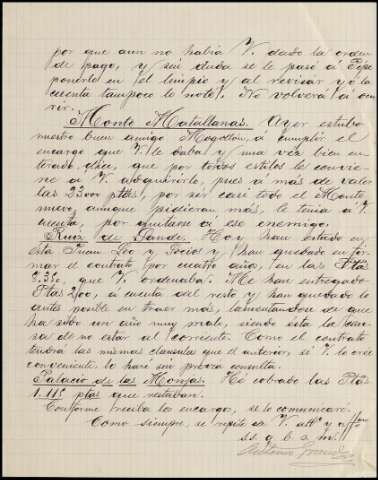 por que aun no habia V. dado la orden
de pago, y sin duda se le pasó á Pepe
ponerlo en el limpio y al revisar yo la
cuenta tampoco lo noté. No volverá á ocu
rrir.
Monte Matallanas. Ayer estubo
nuestro buen amigo Mogollon, á cumplir el
encargo que V. le daba y una vez bien en
terado, dice, que por todos estilos le convie
ne a V. adquirirlo, pues á más de valer
las 33000 ptas, por ser casi todo el Monte
nuevo, aunque pidieran más, le tenia a V.
cuenta, por quitarse a ese enemigo.
de Hoy han estado en
esta Juan Leo y Socios y han quedado en fir
mar el contrato por cuatro años, en las Ptas
que V. ordenaba. Me han entregado
Ptas á cuenta del resto y han quedado lo
antes posible en traer más, lamentandose de que
ha sido un año muy malo, siendo esta la cau
sa de no estar al corriente. Como el contrato
tendrá las mismas clausulas que el anterior, si V. lo cree
conveniente lo haré sin previa consulta.
Palacio de las Monjas. He cobrado las Ptas
1.115 ptas que restaban.
Conforme reciba los encargos, se lo comunicaré.
Como siempre, se repite de V. attº y affmo
s.s. q. b. s. m.
Antonio